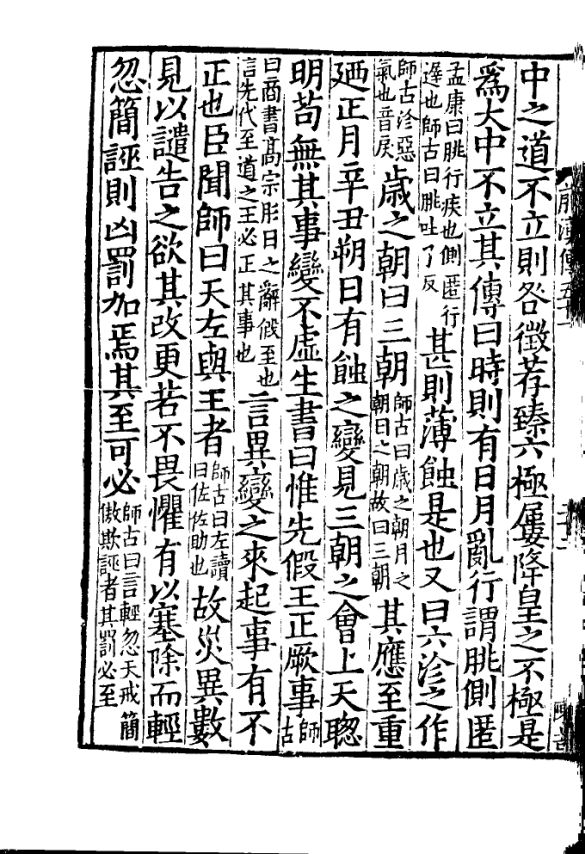 中之道不立則咎徵荐臻六極屢降皇之不極是
爲大中不立其傳曰時則有日月亂行謂朓側匿
孟康曰朓行疾也側匿行遟也師古曰朓吐了反甚則薄蝕是也又曰六沴之作
師古沴惡氣也音戾歲之朝曰三朝師古曰歲之朝月之朝日之朝故曰三朝其應至重
廼正月辛丑朔日有蝕之變見三朝之會上天聦
明苟無其事變不虛生書曰惟先假王正厥事師古
曰商書髙宗肜日之辭假至也言先代至道之王必正其事也言異變之來起事有不
正也臣聞師曰天左與王者師古曰左讀曰佐佐助也故災異數
見以譴告之欲其改更若不畏懼有以塞除而輕
忽簡誣則凶罰加焉其至可必師古曰言輕忽天戒簡傲欺誣者其罰必至